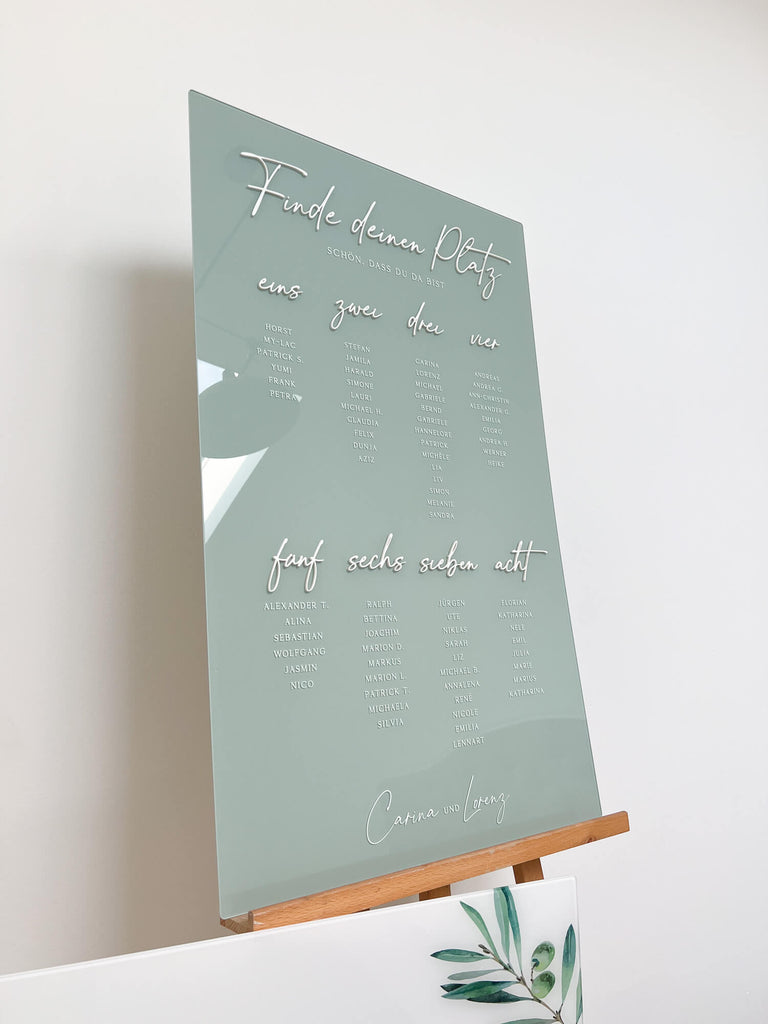 Finde deinen Platz
SCHÖN, DASS DU DA BIST
eins
HORST
MY-LAC
PATRICK S.
YUMI
FRANK
PETRA
zwei
STEFAN
JAMILA
HARALD
SIMONE
LAURI
MICHAEL H.
CLAUDIA
FELIX
DUNJA
AZIZ
drei
CARINA
LORENZ
MICHAEL
GABRIELE
BERND
GABRIELE
HANNELORE
PATRICK
MICHÈLE
LIA
LIV
SIMON
MELANIE
SANDRA
vier
ANDREAS
ANDREA G.
ANN-CHRISTIN
ALEXANDER G.
EMILIA
GEORG
ANDREA H.
WERNER
HEIKE
fünf
ALEXANDER T.
ALINA
SEBASTIAN
WOLFGANG
JASMIN
NICO
sechs
RALPH
BETTINA
JOACHIM
MARION D.
MARKUS
MARION L.
PATRICK T.
MICHAELA
SILVIA
sieben
JÜRGEN
UTE
NIKLAS
SARAH
LIZ
MICHAEL B.
ANNALENA
RENÉ
NICOLE
EMILIA
LENNART
acht
FLORIAN
KATHARINA
NELE
EMIL
JULIA
MARIE
MARIUS
KATHARINA
Carina UND Lorenz